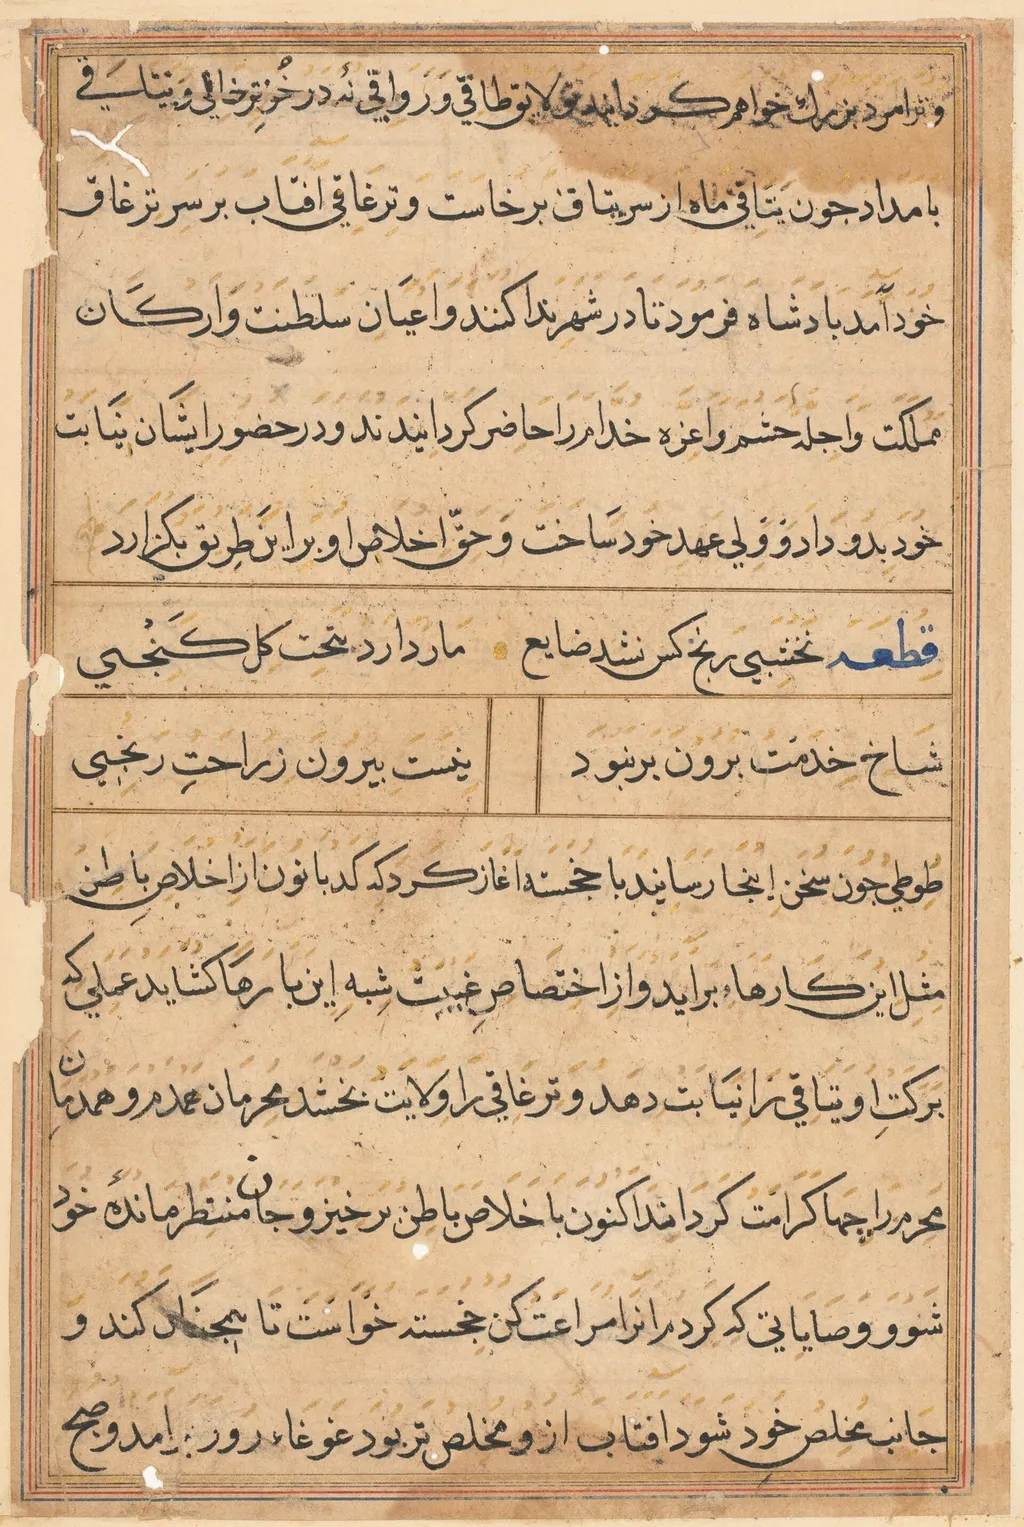 و ترا مرد بزرك خواهم كردانید تو لایق طاقی و رواقی نه در خز تر خالی و یتاسقی
بامداد جون یتاقی ماه از سر یتاق برخاست و ترغاقی افتاب بر سر ترغاق
خود آمد بادشاه فرمود تا در شهر ندا كنند و اعیان سلطنت و اركان
مملكت و اجلهٔ حشم و اعزه خدام را حاضر كردانیدند و در حضور ایشان نیابت
خود بدو داد و ولی عهد خود ساخت و حقّ اخلاص او بر این طریق بكزارد
قطعه نخشبی رنج كس نشد ضایع مار دارد بتحت كل كنجی
شاخ خدمت برون بر نبود نیست بیرون ز راحت رنجی
طوطی جون سخن اینجا رسانید با خجسته اغاز كرد كه كدبانون از اخلاص باطن
مثل این كارها براید و از اختصاص غیبت شبه این بارها كشاید عملی كه
بركت او یتاقی را نیابت دهد و ترغاقی را ولایت بخشد محرمان همدم و همدمان
محرم را جها كرامت كرداند اكنون با خلاص باطن برخیز و جان منتظر ماندهٔ خود
شو و وصایایی كه كردم انرا مراعت كن خجسته خواست تا همجنان كند و
جانب مخلص خود شود افتاب ازو مخلص تر بود غوغاء روز برامد و صبح